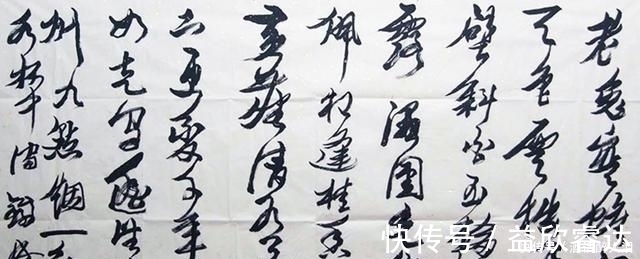 老兔寒蟾
天色云楼
壁斜白玉轮
露湿团光
佩相逢桂香
黄尘清水三
下更变千年
如走马遥
州九点烟一
水杯中
快传号 / 益欣睿达